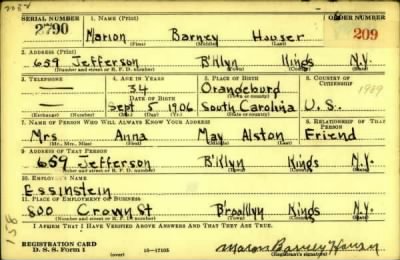 SERIAL NUMBER 1. NAME (Print) ORDER NUMBER
2790 Marion Barney Hauser 209
(First) (Middle) (Last)
2. ADDRESS (Print)
659 Jefferson B'Klyn Kings N.Y.
(Number and street or R. F. D. number) (Town) (County) (State)
3. TELEPHONE 4. AGE IN YEARS 5. PLACE OF BIRTH 6. COUNTRY OF CITIZENSHIP
— 34 Orangeburg
DATE OF BIRTH (Town or county)
— Sept 5 1906 South Carolina U.S.
(Exchange) (Number) (Mo.) (Day) (Yr.) (State or country)
7. NAME OF PERSON WHO WILL ALWAYS KNOW YOUR ADDRESS 8. RELATIONSHIP OF THAT PERSON
Mrs Anna May Alston Friend
(Mr., Mrs., Miss) (First) (Middle) (Last)
9. ADDRESS OF THAT PERSON
659 Jefferson B'Klyn Kings N.Y.
(Number and street or R. F. D. number) (Town) (County) (State)
10. EMPLOYER'S NAME
Essinstein
11. PLACE OF EMPLOYMENT OR BUSINESS
800 Crown St Brooklyn Kings N.Y.
(Number and street or R. F. D. number) (Town) (County) (State)
I AFFIRM THAT I HAVE VERIFIED ABOVE ANSWERS AND THAT THEY ARE TRUE.
REGISTRATION CARD
D. S. S. Form 1 (over) 16—17105 Marion Barney Hauser
(Registrant's signature)
158